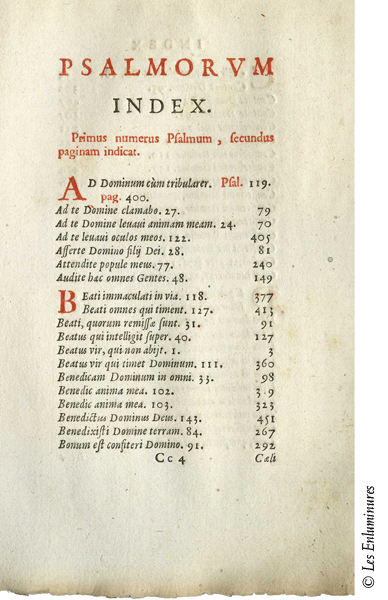 PSALMORVM
INDEX.
Primus numerus Psalmum, secundus
paginam indicat.
AD Dominum cùm tribularer. Psal. 119.
pag. 400.
Ad te Domine clamabo. 27. 79
Ad te Domine leuaui animam meam. 24. 70
Ad te leuaui oculos meos. 122. 405
Afferte Domino filij Dei. 28. 81
Attendite popule meus. 77. 240
Audite hæc omnes Gentes. 48. 149
BEati immaculati in via. 118. 377
Beati omnes qui timent. 127. 413
Beati, quorum remissæ sunt. 31. 91
Beatus qui intelligit super. 40. 127
Beatus vir, qui non abijt. 1. 3
Beatus vir qui timet Dominum. 111. 360
Benedicam Dominum in omni. 33. 98
Benedic anima mea. 102. 3 9
Benedic anima mea. 103. 323
Benedictus Dominus Deus. 143. 451
Benedixisti Domine terram. 84. 267
Bonum est confiteri Domino. 91. 292
Cc 4 Cæli
© Les Enluminures